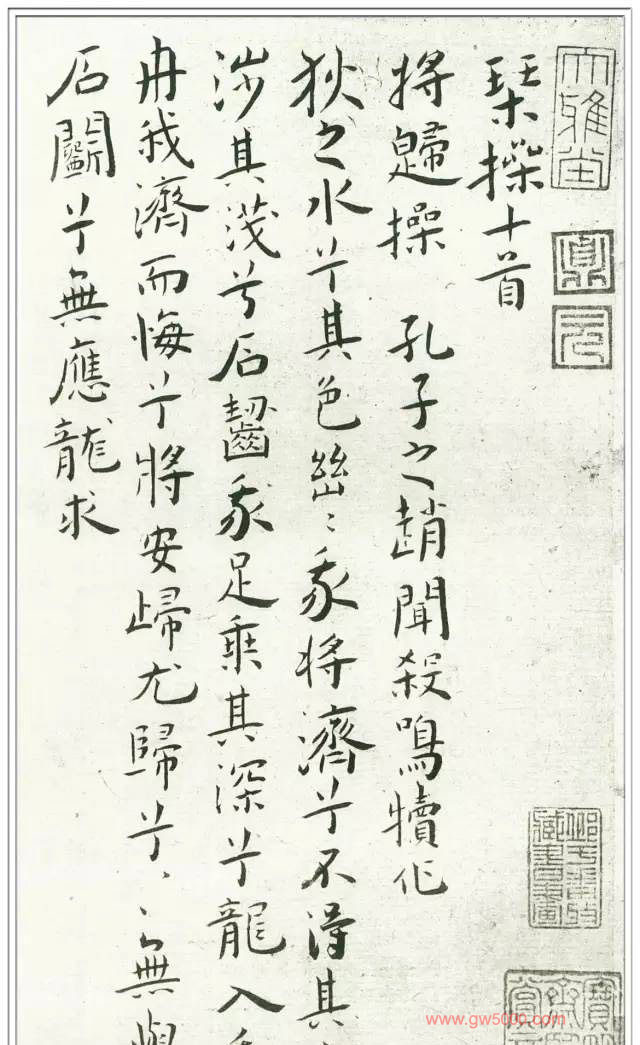 大雅堂
琴操十首
將歸操 孔子之趙聞殺鳴犢作
狄之水兮其色幽〻我將濟兮不得其
涉其淺兮石齧我足乘其深兮龍入我
舟我濟而悔兮將安歸尤歸兮〻〻無與
石鬭兮無應龍求
www.gw5000.com